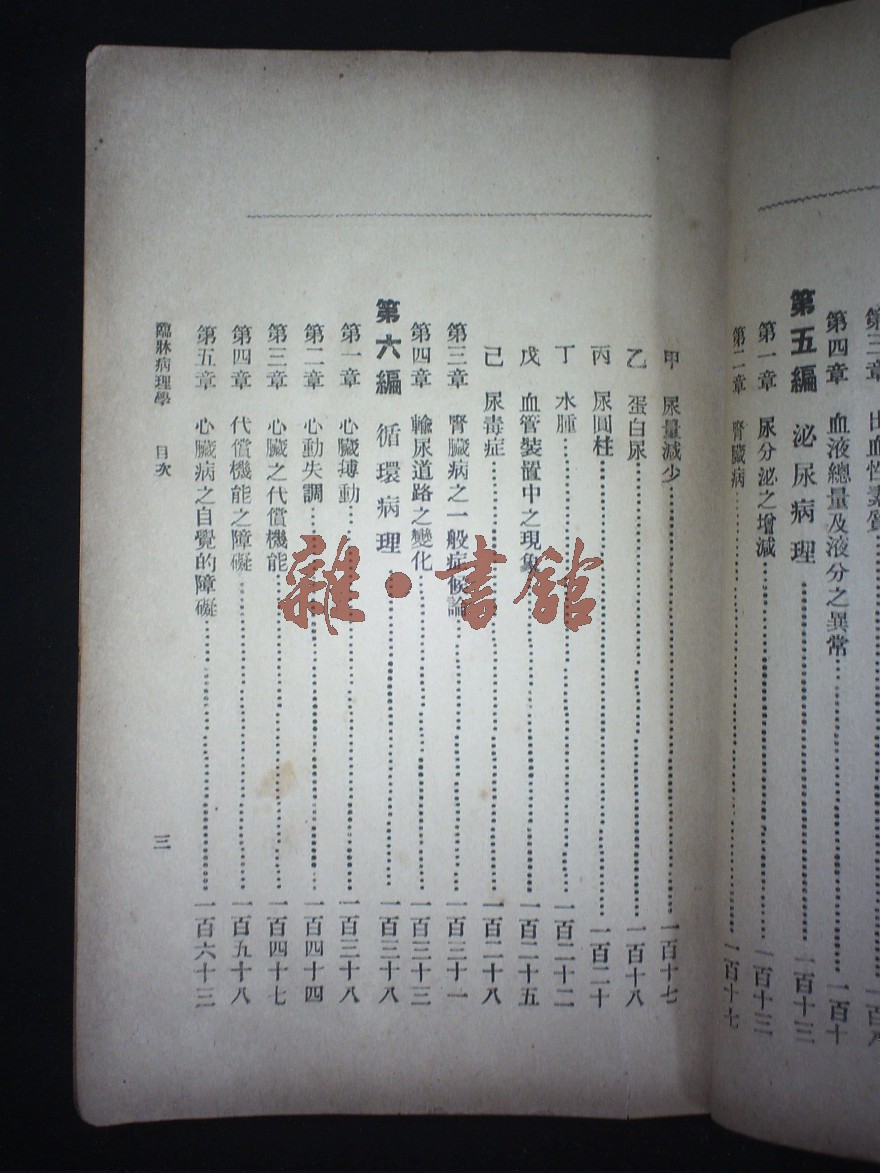 出血性素質
第四章　血液總量及液分之異常……一百十
第五編　泌尿病理……一百十三
第一章　尿分泌之增減……一百十三
第二章　腎臟病……一百十七
甲　尿量減少……一百十七
乙　蛋白尿……一百十八
丙　尿圓柱……一百二十
丁　水腫……一百二十二
戊　血管裝置中之現象……一百二十五
己　尿毒症……一百二十八
第三章　腎臟病之一般症候論……一百三十一
第四章　輸尿道路之變化……一百三十三
第六編　循環病理……一百三十八
第一章　心臟搏動……一百三十八
第二章　心動失調……一百四十四
第三章　心臟之代償機能……一百四十七
第四章　代償機能之障礙……一百五十八
第五章　心臟病之自覺的障礙……一百六十三
臨牀病理學　目次　三
雜·書館